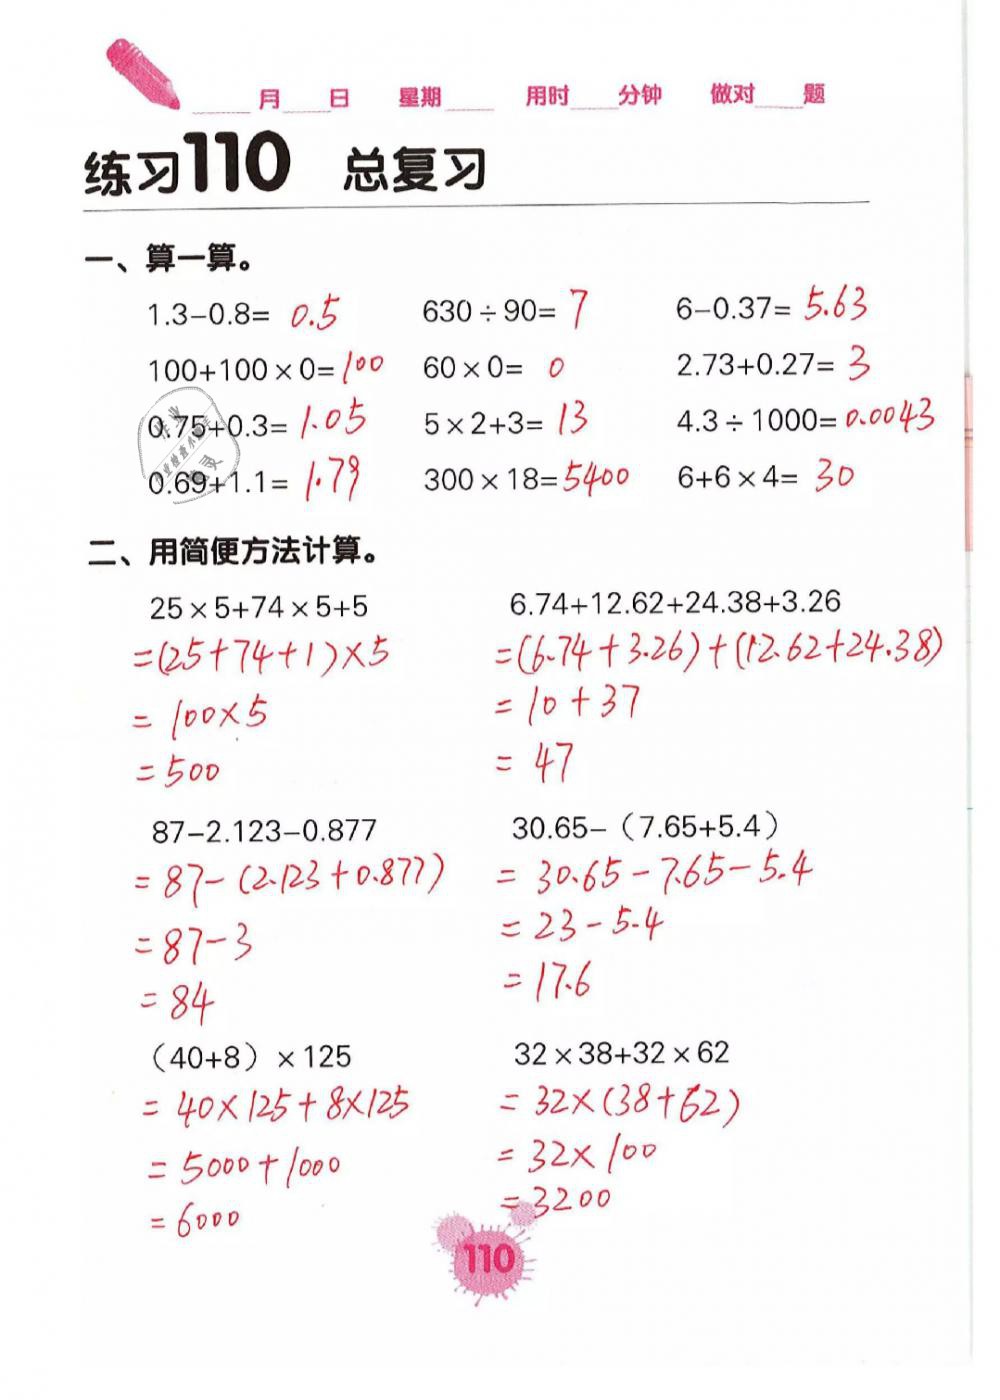 ____月____日 星期____ 用时____分钟 做对____题
练习110 总复习
一、算一算。
1.3-0.8= 0.5 630÷90= 7 6-0.37= 5.63
100+100×0= 100 60×0= 0 2.73+0.27= 3
0.75+0.3= 1.05 5×2+3= 13 4.3÷1000= 0.0043
0.69+1.1= 1.79 300×18= 5400 6+6×4= 30
二、用简便方法计算。
25×5+74×5+5 6.74+12.62+24.38+3.26
=(25+74+1)×5 =(6.74+3.26)+(12.62+24.38)
=100×5 =10+37
=500 =47
87-2.123-0.877 30.65-（7.65+5.4）
=87-(2.123+0.877) =30.65-7.65-5.4
=87-3 =23-5.4
=84 =17.6
（40+8）×125 32×38+32×62
=40×125+8×125 =32×(38+62)
=5000+1000 =32×100
=6000 =3200
110